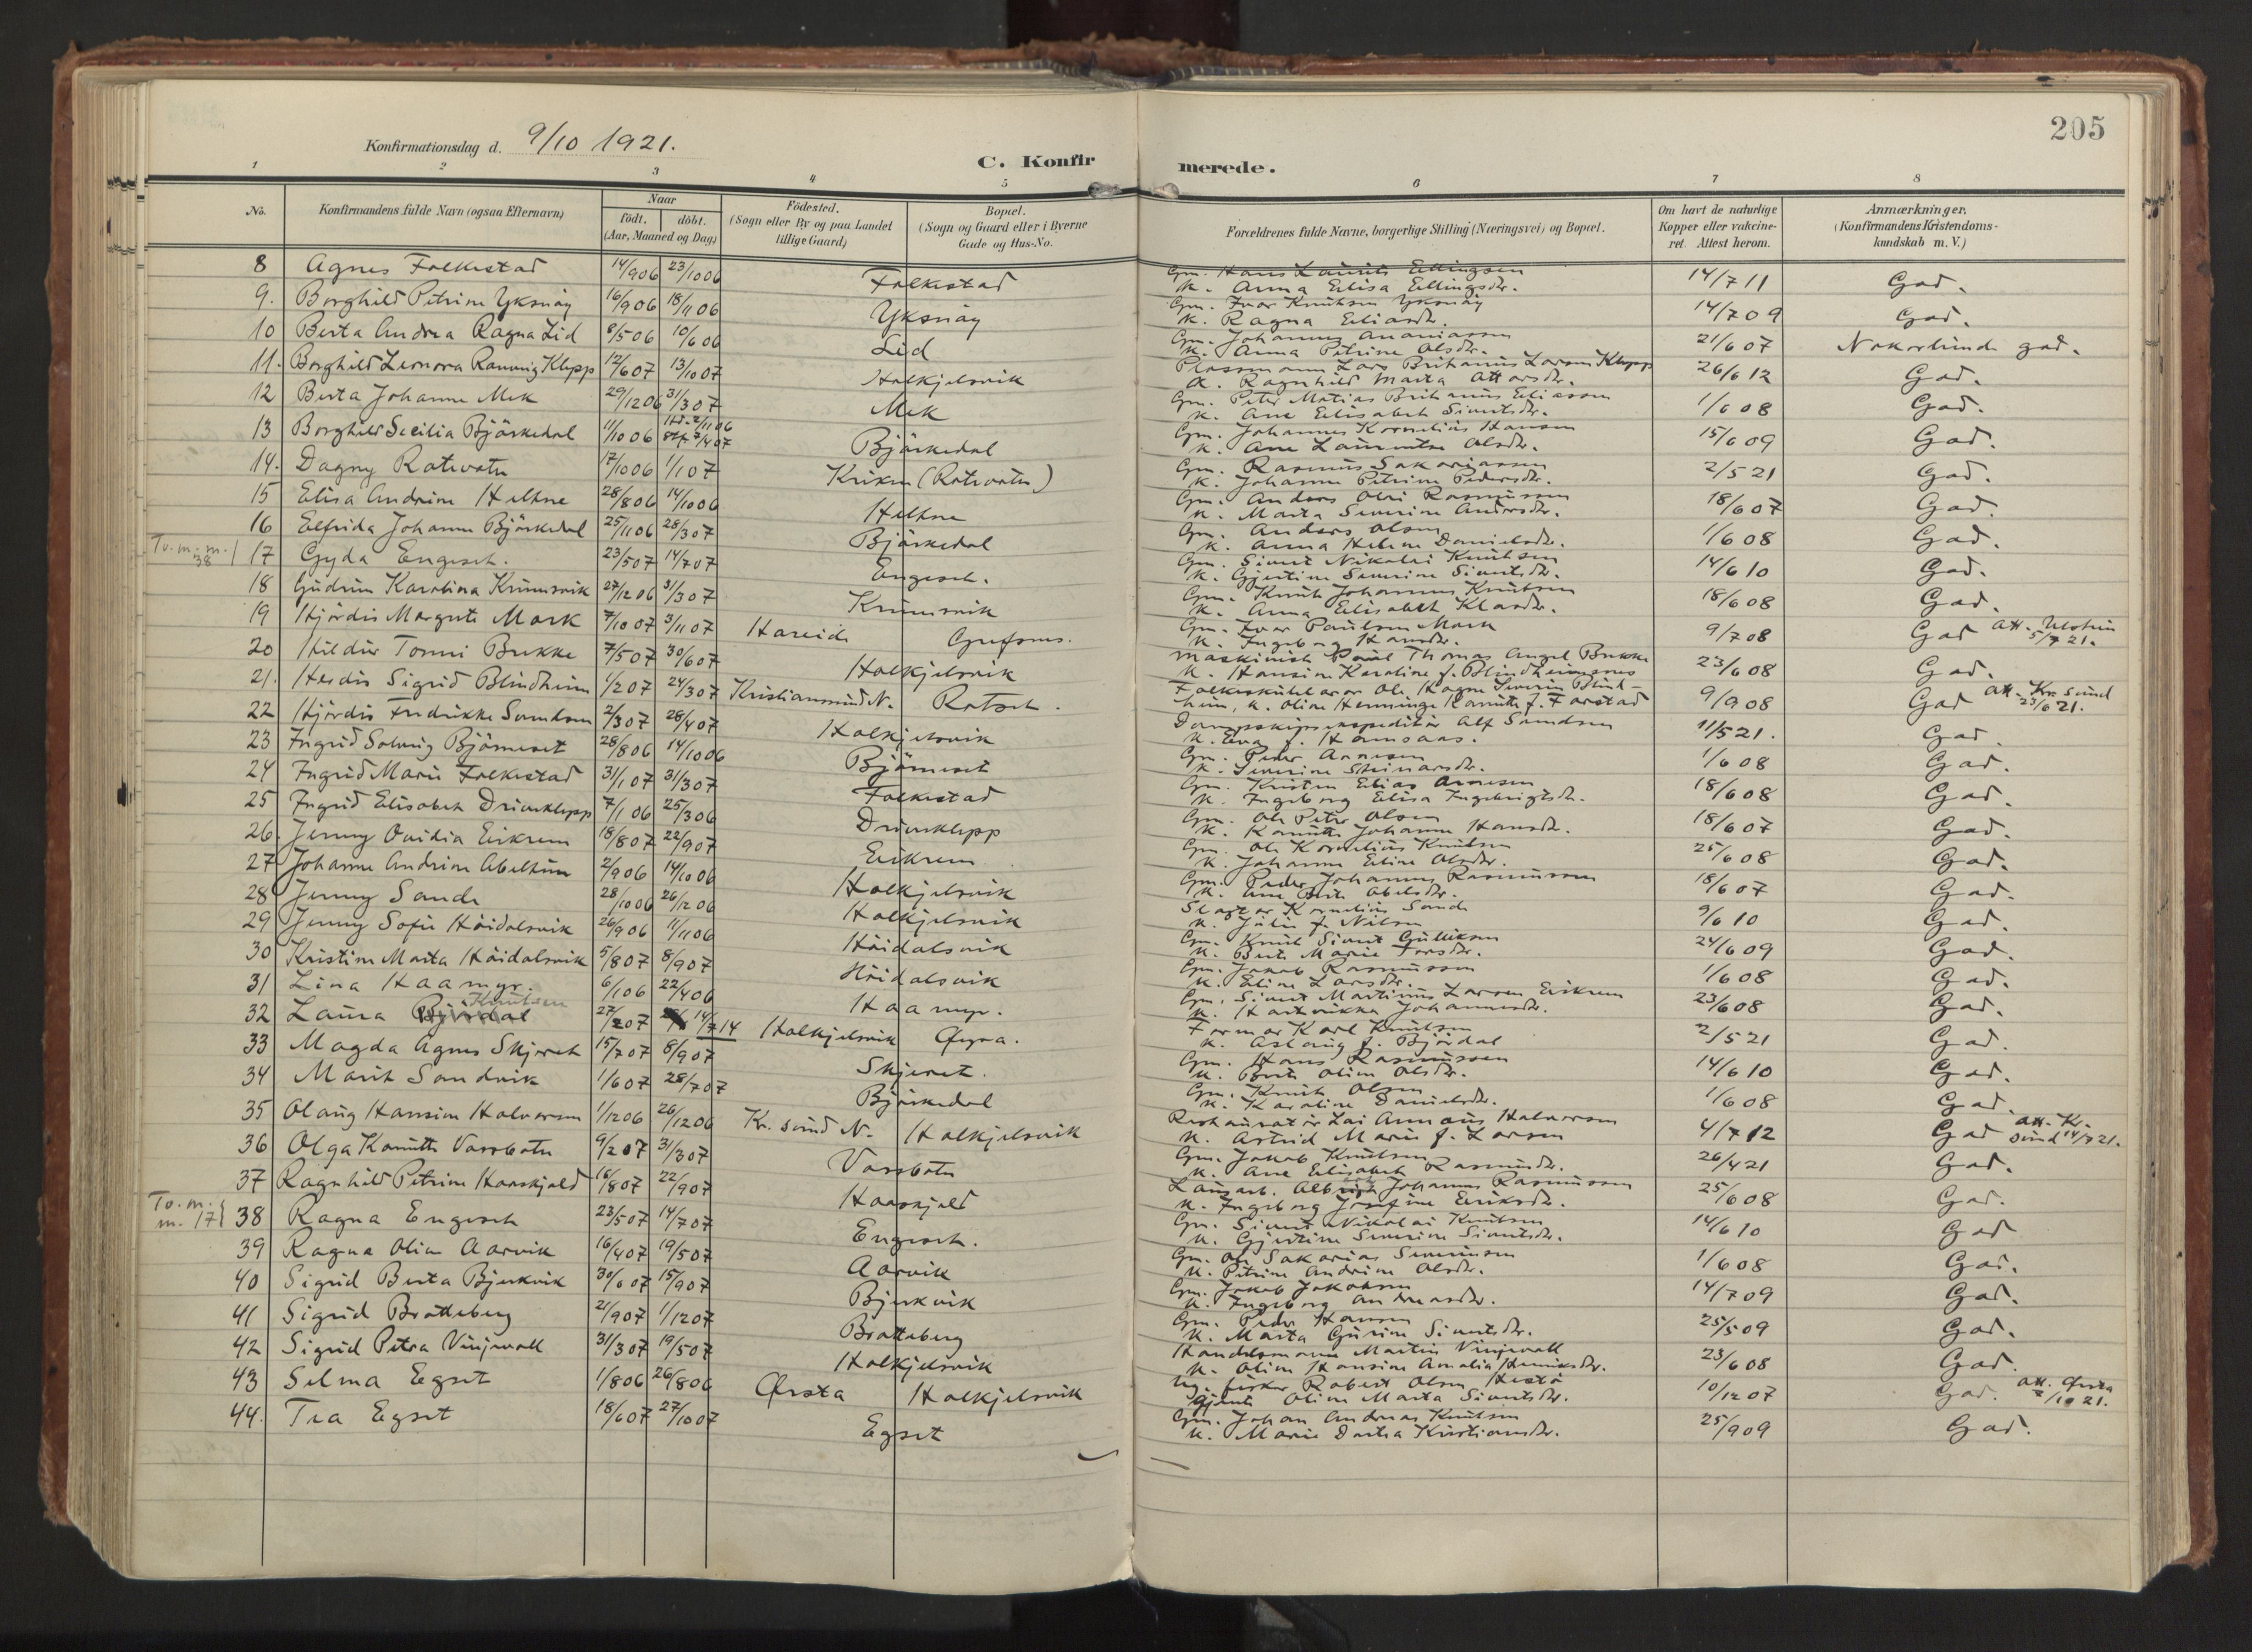 205
Konfirmationsdag d. 9/10 1921.
C. Konfirmerede.
1 2 3 4 5 6 7 8
No.
Konfirmandens fulde Navn (ogsaa Efternavn)
Naar
født. døbt.
(Aar, Maaned og Dag)
Fødested.
(Sogn eller By og paa Landet
tillige Gaard)
Bopæl.
(Sogn og Gaard eller i Byerne
Gade og Hus-No.
Forældrenes fulde Navne, borgerlige Stilling (Næringsvei) og Bopæl.
Om havt de naturlige
Kopper eller vakcine-
ret. Attest herom.
Anmærkninger.
(Konfirmandens Kristendoms-
kundskab m. V.)
8 Agnes Folkestad 14/9 06 23/10 06 Folkestad Gm. Hans Laurits Ellingsen 14/7 11 God.
K. Anna Elisa Ellingsdr.
9. Borghild Petrine Yksnøy 16/9 06 18/11 06 Yksnøy Gm. Ivar Knutsen Yksnøy 14/7 09 God.
K. Ragna Eliasdr.
10 Berta Andrea Ragna Lid 8/5 06 10/6 06 Lid Gm. Johannes Ananiassen 21/6 07 Nokorlunde god.
K. Anna Petrine Olsdr.
11. Borghild Leonora Ranveig Klepp 12/6 07 13/10 07 Halkjelsvik Plassmann Lars Britanus Larsen Klepp 26/6 12 God.
K. Ragnhild Marta Attorsdr.
12 Berta Johanne Mek 29/12 06 31/3 07 Mek Gm. Peter Matias Britanus Eliassen 1/6 08 God.
K. Ane Elisabet Sivertsdr.
13 Borghild Secilia Bjørkedal 11/10 06 2/11 06 7/4 07 Bjørkedal Gm. Johannes Kornelius Hansen 15/6 09 God.
K. Ane Laurentse Olsdr.
14. Dagny Rotevatn 17/10 06 1/1 07 Kriken (Rotevatn) Gm. Rasmus Sakariassen 2/5 21 God.
K. Johanne Petrine Pedersdr.
15 Elisa Andrine Heltne 28/8 06 14/10 06 Heltne Gm. Anders Olai Rasmussen 18/6 07 God.
K. Marta Severine Andersdr.
16 Elfrida Johanne Bjørkedal 25/11 06 28/3 07 Bjørkedal Gm. Anders Olsen 1/6 08 God.
K. Anna Helene Danielsdr.
Tv. m. m. 38 17 Gyda Engeset. 23/5 07 14/7 07 Engeset. Gm. Sivert Nikolai Knutsen 14/6 10 God.
K. Gjertine Severine Sivertsdr.
18 Gudrun Karolina Krumsvik 27/12 06 31/3 07 Krumsvik Gm. Knut Johannes Knutsen 18/6 08 God.
K. Anna Elisabet Klasdr.
19 Hjørdis Margrete Mork 7/10 07 3/11 07 Hareid Grefsnes. Gm. Ivar Paulsen Mork 9/7 08 God att. Ulstein 5/7 21.
K. Ingeborg Hansdr.
20 Hildur Tonni Brekke 7/5 07 30/6 07 Halkjelsvik Maskinist Paul Thomas Angel Brekke 23/6 08 God.
K. Hansine Karoline f. Blindheimsnes
21. Herdis Sigrid Blindheim 1/2 07 24/3 07 Kristiansund N. Rotset. Folkeskulelærar Ole Kagne Severin Blind- 9/9 08 God att. Kr.sund 23/6 21.
heim, K. Oline Henninge Kanutte f. Farstad
22 Hjørdis Fredrikke Samdsen 2/3 07 28/4 07 Halkjelsvik Dampskipsekspeditør Alf Samdsen 11/5 21. God.
K. Eva f. Hamsaas.
23 Ingrid Solveig Bjørneset 28/8 06 14/10 06 Bjørneset Gm. Peder Arnesen 1/6 08 God.
K. Severine Steinarsdr.
24 Ingrid Marie Folkestad 31/1 07 31/3 07 Folkestad Gm. Kristen Elias Arnesen 18/6 08 God.
K. Ingeborg Elisa Ingebrigtsdr.
25 Ingrid Elisabet Drivenklepp 7/1 06 25/3 06 Drivenklepp Gm. Ole Peter Olsen 18/6 07 God.
K. Kanutte Johanne Hansdr.
26. Jenny Ovidia Eikrem 18/8 07 22/9 07 Eikrem Gm. Ole Kornelius Knutsen 25/6 08 God.
K. Johanne Eline Olsdr.
27 Johanne Andrine Abeltun 2/9 06 14/10 06 Halkjelsvik Gm. Peder Johannes Rasmussen 18/6 07 God.
K. Ane Berte Abelsdr.
28 Jenny Sande 28/10 06 26/12 06 Halkjelsvik Slagtar Kornelius Sande 9/6 10 God.
K. Julie f. Nilsen
29 Jenny Sofie Høidalsvik 26/9 06 11/11 06 Høidalsvik Gm. Knut Sivert Gulliksen 24/6 09 God.
K. Berte Marie Torsdr.
30 Kristine Marta Høidalsvik 5/8 07 8/9 07 Høidalsvik Gm. Jakob Rasmussen 1/6 08 God.
K. Eline Larsdr.
31 Lina Haamyr. 6/1 06 22/4 06 Haamyr. Gm. Sivert Martinus Larsen Eikrem 23/6 08 God.
K. Hartvikka Johannesdr.
32 Laura Bjørdal Knutsen 27/2 07 14/7 14 Halkjelsvik Øyra. Formar Karl Knutsen 2/5 21 God.
K. Aslaug f. Bjørdal
33 Magda Agnes Skjeret 15/7 07 8/9 07 Skjeret. Gm. Hans Rasmussen 14/6 10 God.
K. Berte Oline Olsdr.
34 Marit Sandvik 1/6 07 28/7 07 Bjørkedal Gm. Knut Olsen 1/6 08 God.
K. Karoline Danielsdr.
35 Olaug Hansine Halvorsen 1/12 06 26/12 06 Kr. sund N. Halkjelsvik Restauratør Lai Annæus Halvorsen 4/7 12 God att. Kr. sund 14/7 21.
K. Astrid Marie f. Larsen
36 Olga Kanutte Vassbotn 9/2 07 31/3 07 Vassbotn Gm. Jakob Knutsen 26/4 21 God.
K. Ane Elisabet Rasmusdr.
37 Ragnhild Petrine Haaskjold 16/8 07 22/9 07 Haaskjold Lausarb. Albrigt Johannes Rasmussen 25/6 08 God.
K. Ingeborg Josefine Eriksdr.
Tv. m. m. 17 38 Ragna Engeset 23/5 07 14/7 07 Engeset. Gm. Sivert Nikolai Knutsen 14/6 10 God
K. Gjertine Severine Sivertsdr.
39 Ragna Olia Aarvik 16/4 07 19/5 07 Aarvik Gm. Ole Sakarias Severinsen 1/6 08 God.
K. Petrine Andrine Olsdr.
40 Sigrid Berta Bjerkvik 30/6 07 15/9 07 Bjerkvik Gm. Jakob Jakobsen 14/7 09 God.
K. Ingeborg Andreasdr.
41 Sigrid Bratteberg 21/9 07 1/12 07 Bratteberg Gm. Peder Hansen 25/5 09 God.
K. Marta Gurine Sivertsdr.
42 Sigrid Petra Vinjevoll 31/3 07 19/5 07 Halkjelsvik Handelsmann Martin Vinjevoll 23/6 08 God.
K. Oline Hansine Amalia Henriksdr.
43 Selma Egset 1/8 06 26/8 06 Ørsta Halkjelsvik Ug. fisker Robert Olsen Hestø 10/12 07 God. att. Ørsta /10 21.
Gjente Oline Marta Sivertsdr.
44. Tea Egset 18/6 07 27/10 07 Egset Gm. Johan Andreas Knutsen 25/9 09 God.
K. Marie Dortea Kristiansdr.